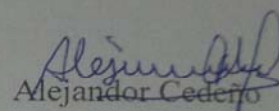 Alejandor Cedeño